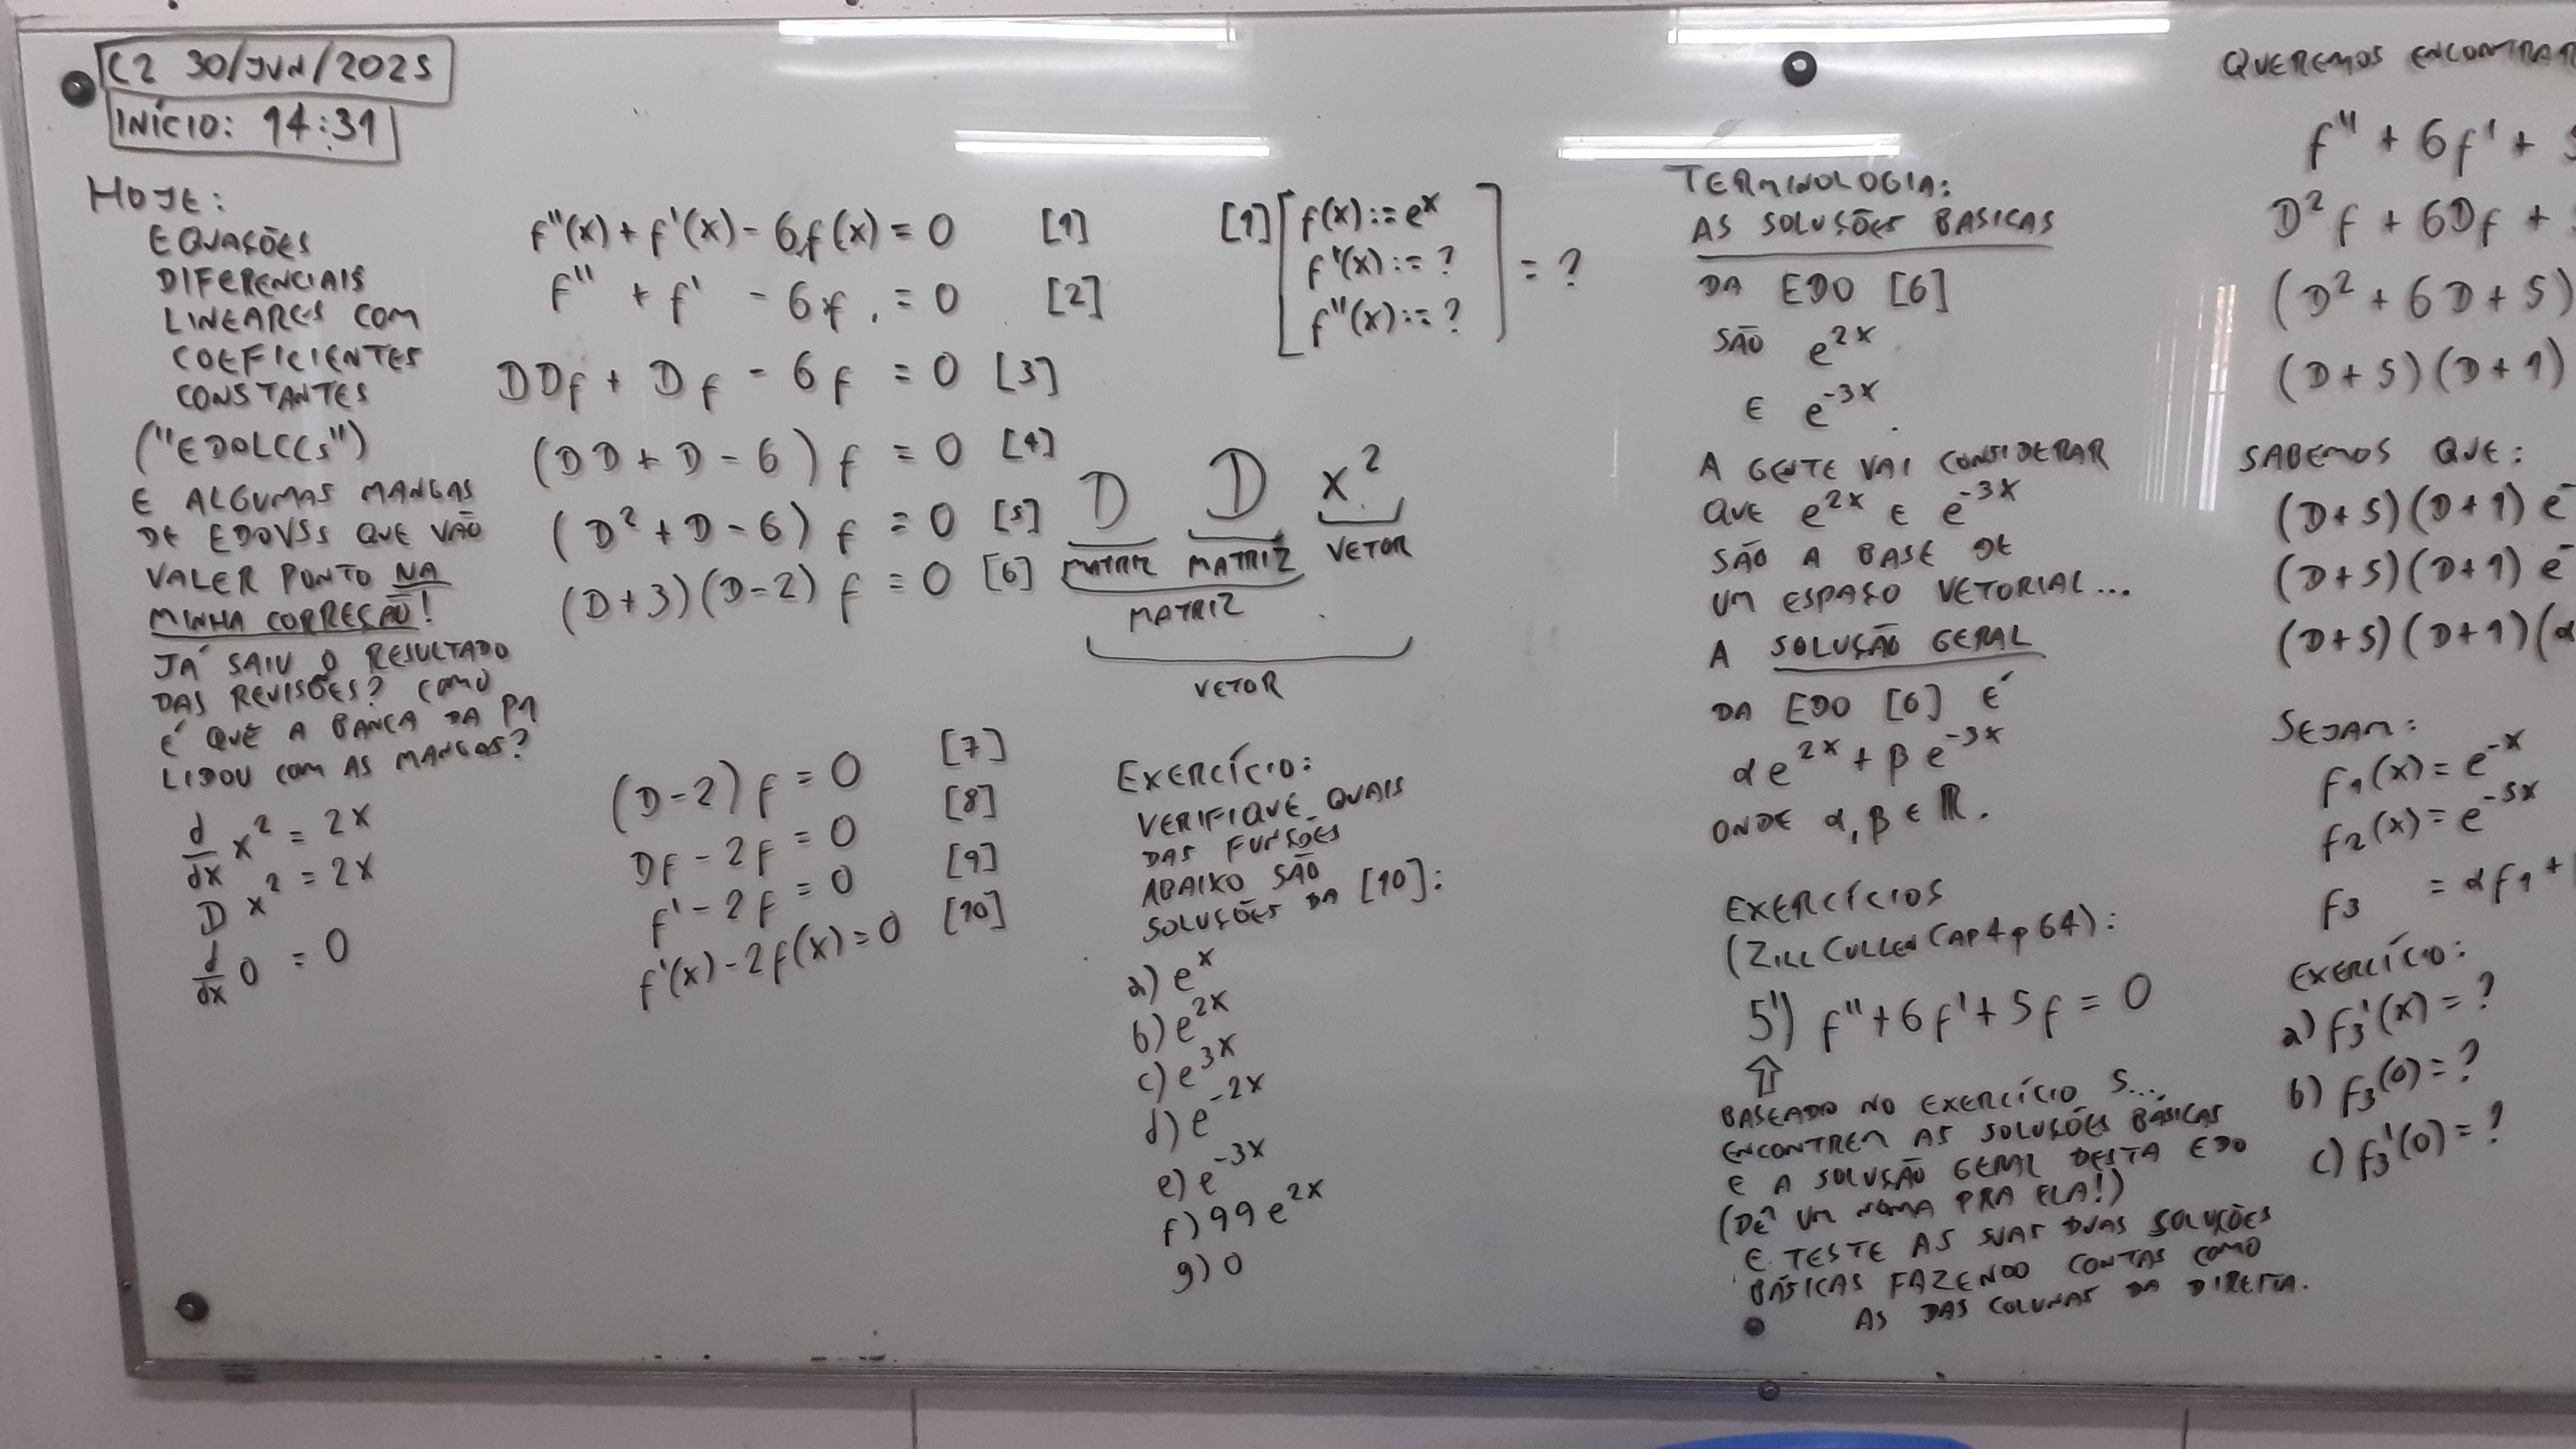 C2 30/JUN/2025
INÍCIO: 14:31
HOJE:
EQUAÇÕES
DIFERENCIAIS
LINEARES COM
COEFICIENTES
CONSTANTES
("EDOLCCs")
E ALGUMAS MANGAS
DE EDOVSs QUE VÃO
VALER PONTO NA
MINHA CORREÇÃO!
JÁ SAIU O RESULTADO
DAS REVISÕES? COMO
É QUE A BANCA DA P1
LIDOU COM AS MANGAS?
d/dx x² = 2x
D x² = 2x
d/dx 0 = 0
f''(x) + f'(x) - 6f(x) = 0 [1]
f'' + f' - 6f = 0 [2]
DDf + Df - 6f = 0 [3]
(DD + D - 6) f = 0 [4]
(D² + D - 6) f = 0 [5]
(D+3)(D-2) f = 0 [6]
(D-2) f = 0 [7]
Df - 2f = 0 [8]
f' - 2f = 0 [9]
f'(x) - 2f(x) = 0 [10]
[1] [f(x) := eˣ
f'(x) := ?
f''(x) := ?] = ?
D D x²
MATRIZ MATRIZ VETOR
MATRIZ
VETOR
EXERCÍCIO:
VERIFIQUE QUAIS
DAS FUNÇÕES
ABAIXO SÃO
SOLUÇÕES DA [10]:
a) eˣ
b) e²ˣ
c) e³ˣ
d) e⁻²ˣ
e) e⁻³ˣ
f) 99e²ˣ
g) 0
TERMINOLOGIA:
AS SOLUÇÕES BASICAS
DA EDO [6]
SÃO e²ˣ
E e⁻³ˣ.
A GENTE VAI CONSIDERAR
QUE e²ˣ E e⁻³ˣ
SÃO A BASE DE
UM ESPAÇO VETORIAL...
A SOLUÇÃO GERAL
DA EDO [6] É
αe²ˣ + βe⁻³ˣ
ONDE α, β ∈ ℝ.
EXERCÍCIOS
(ZILLCULLENCAP4p64):
5') f'' + 6f' + 5f = 0
⇑
BASEADO NO EXERCÍCIO 5...
ENCONTREM AS SOLUÇÕES BÁSICAS
E A SOLUÇÃO GERAL DESTA EDO
(DÊ UM NOMA PRA ELA!)
E TESTE AS SUAS DUAS SOLUÇÕES
BÁSICAS FAZENDO CONTAS COMO
AS DAS COLUNAS DA DIREITA.
QUEREMOS ENCONTRAR
f'' + 6f' +
D²f + 6Df +
(D² + 6D + 5)
(D+5)(D+1)
SABEMOS QUE:
(D+5)(D+1) e⁻
(D+5)(D+1) e⁻
(D+5)(D+1)(α
SEJAM:
f₁(x) = e⁻ˣ
f₂(x) = e⁻⁵ˣ
f₃ = αf₁ +
EXERCÍCIO:
a) f₃'(x) = ?
b) f₃(0) = ?
c) f₃'(0) = ?